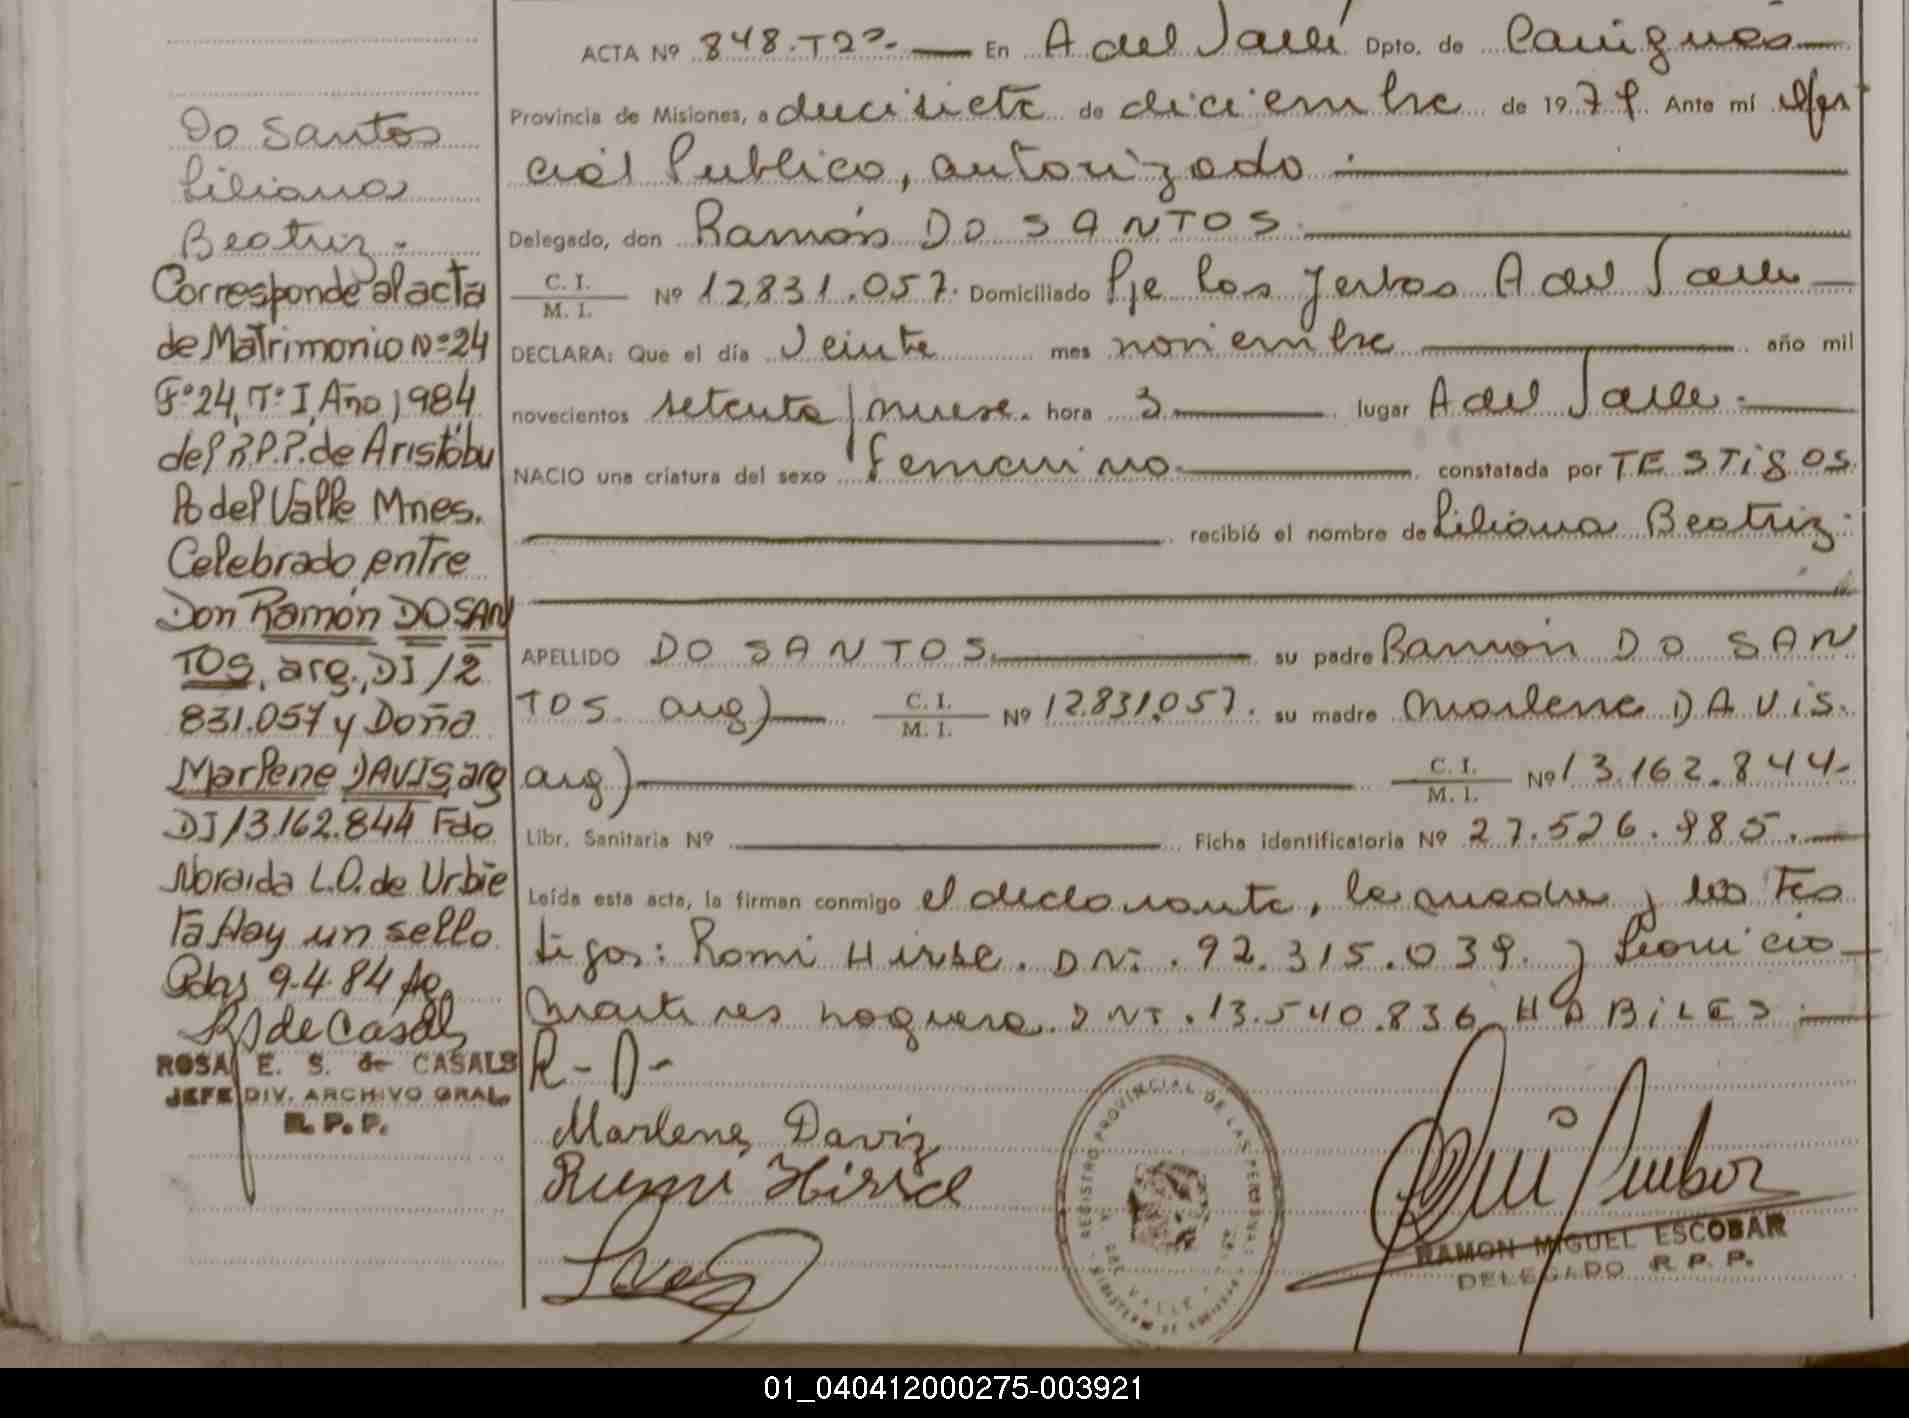 ACTA Nº 848.T2º. En A del Valle Dpto. de Cainguás
Provincia de Misiones, a diecisiete de diciembre de 1979 Ante mí Ofi
cial Publico, autorizado
Delegado, don Ramón DO SANTOS
C. I.
M. I. Nº 12.831.057. Domiciliado Pje Los Yerbas A del Valle
DECLARA: Que el día Veinte mes noviembre año mil
novecientos setenta y nueve. hora 3 lugar A del Valle.
NACIO una criatura del sexo femenino. constatada por TESTigos
recibió el nombre de Liliana Beatriz.
APELLIDO DO SANTOS. su padre Ramón DO SAN
TOS arg) C. I.
M. I. Nº 12.831.057. su madre Marlene DAVIS.
arg) C. I.
M. I. Nº 13.162.844.
Libr. Sanitaria Nº Ficha identificatoria Nº 27.526.985.
Leída esta acta, la firman conmigo el declarante, la madre y los Tes
tigos: Romi Hirse. DNi. 92.315.039. y Leonicio
Martires noguera. DNI. 13.540.836 HABiLES.
R - D -
Marlene Daviz
Do Santos
Liliana
Beatriz.
Corresponde al acta
de Matrimonio Nº 24
Fº 24, Tº I, Año 1984
del R.P.P. de Aristóbu
lo del Valle Mnes.
Celebrado entre
Don Ramón DO SAN
TOS, arg., DI 12
831.057 y Doña
Marlene DAVIS, arg
DI 13.162.844 Fdo
Noraida L.O. de Urbie
ta Hay un sello
Pdas 9-4-84
de Casals
ROSA E. S. de CASALS
JEFE DIV. ARCHIVO GRAL.
R. P. P.
REGISTRO PROVINCIAL DE LAS PERSONAS
VALLE
RAMON MIGUEL ESCOBAR
DELEGADO R. P. P.
01_040412000275-003921